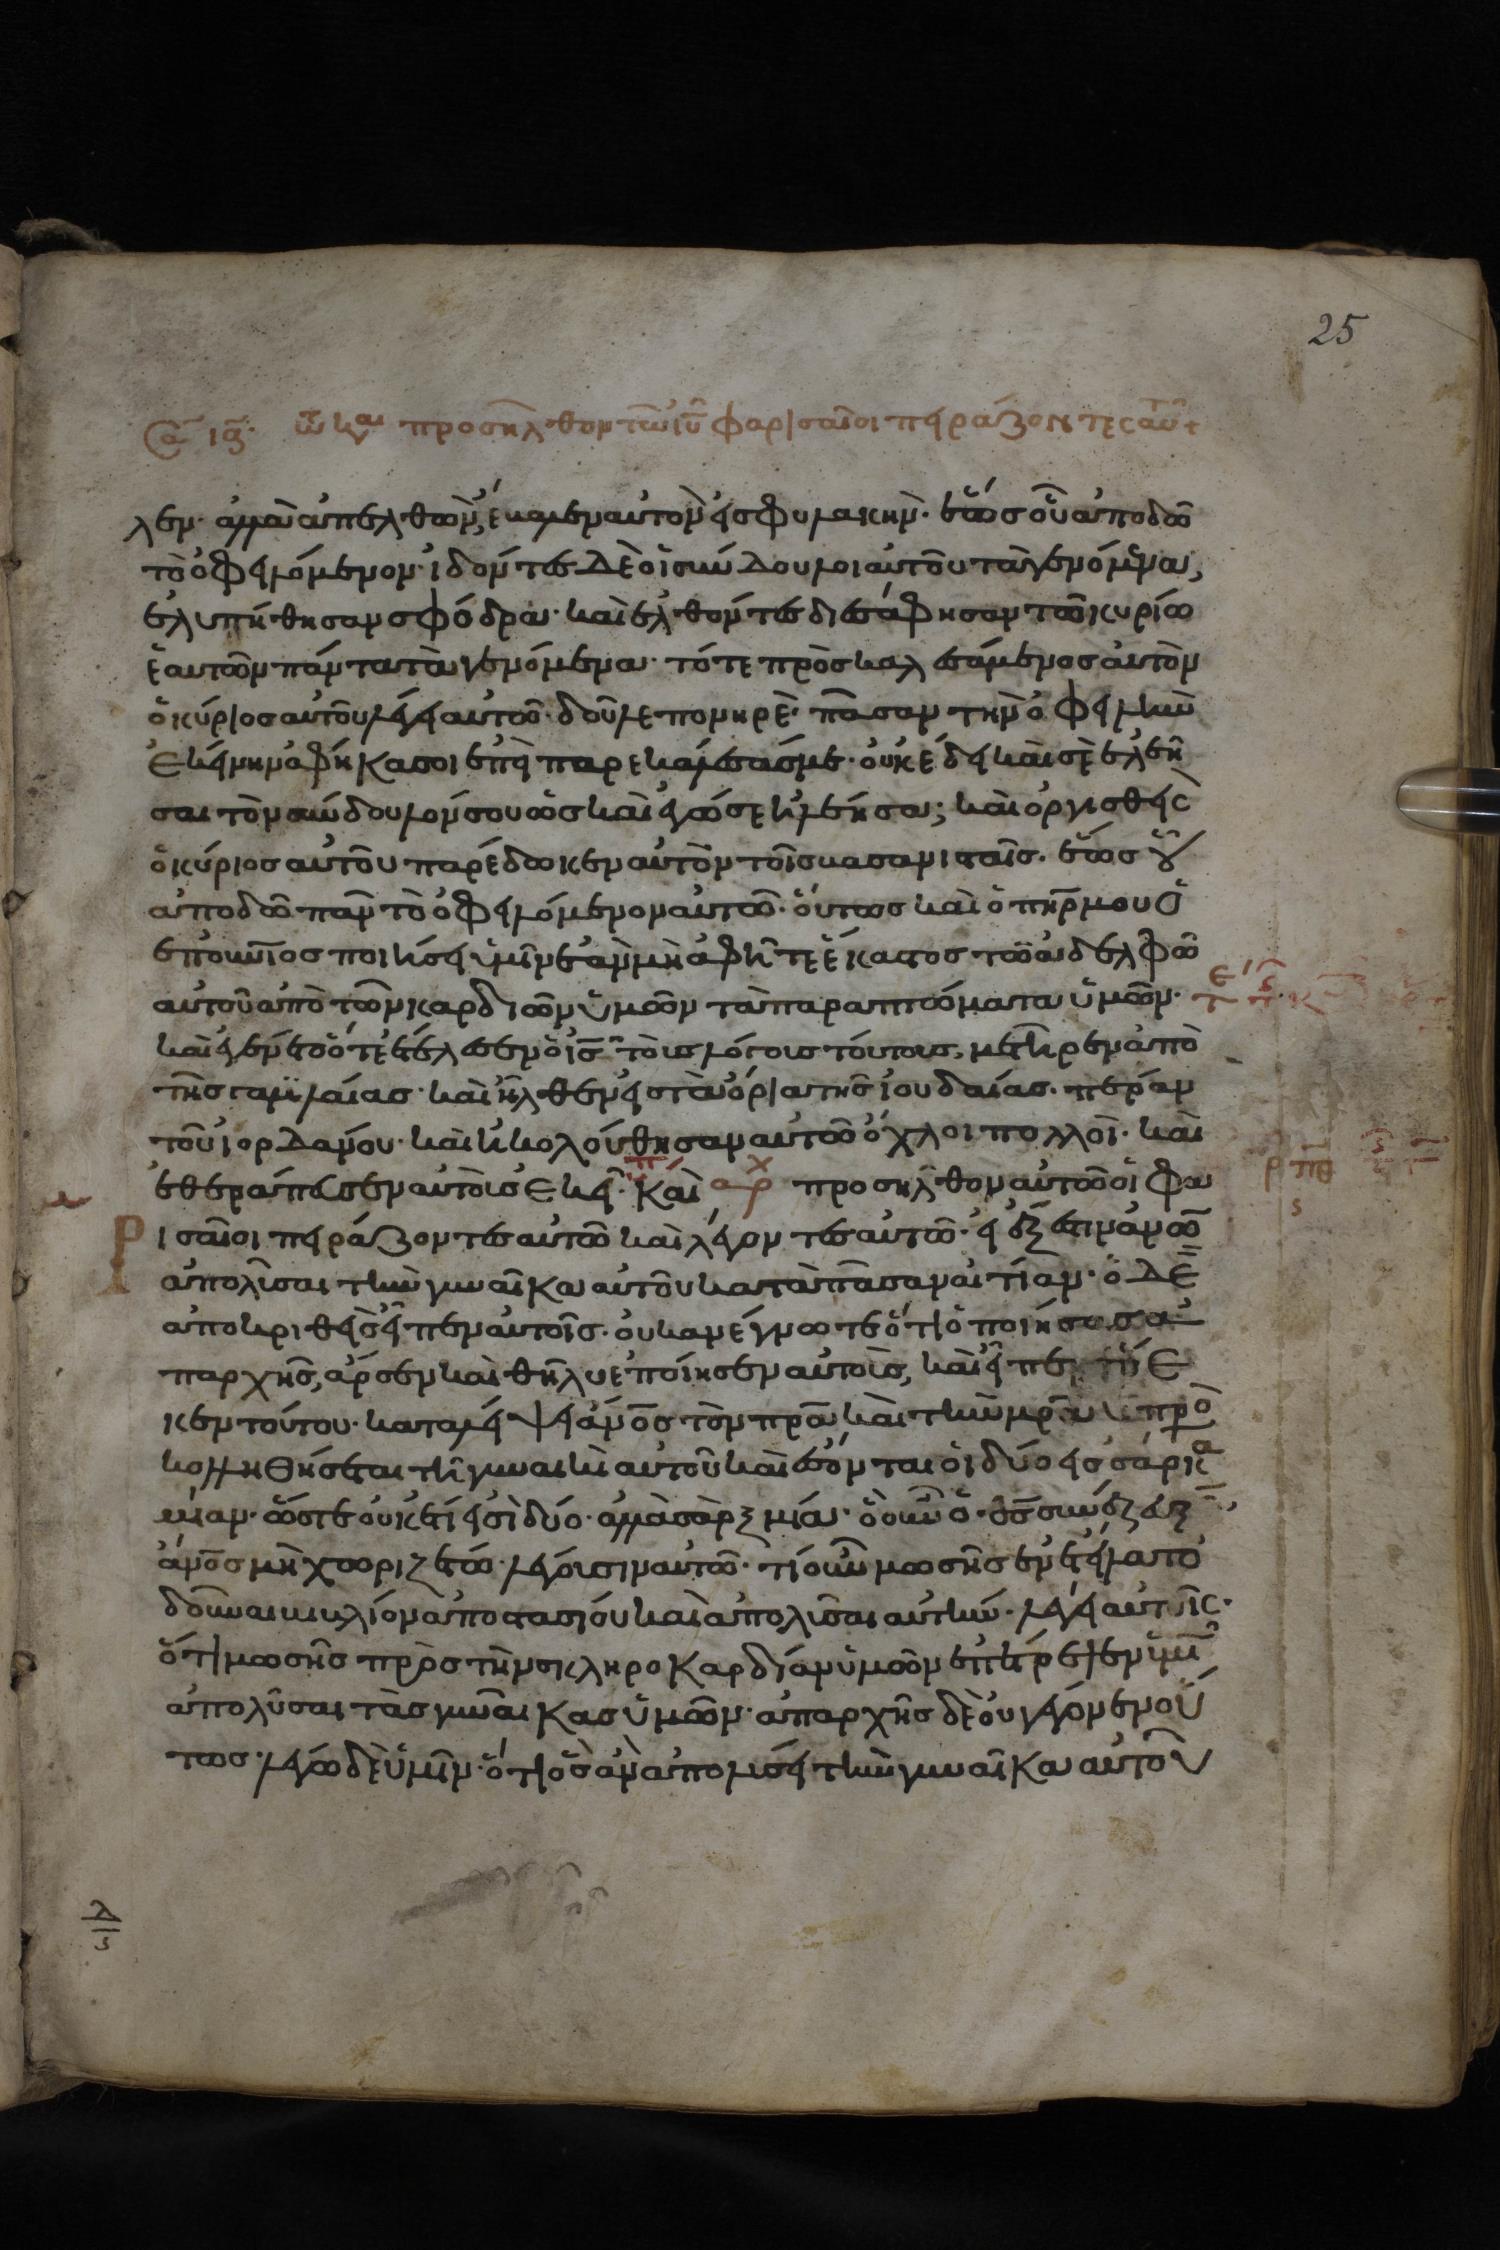 25
λεν· ἀλλὰ ἀπελθὼν, ἔβαλεν αὐτὸν εἰς φυλακὴν· ἕως οὗ ἀποδῶ
τὸ ὀφειλόμενον· ἰδόντες δὲ οἱ σύνδουλοι αὐτοῦ τὰ γενόμενα,
ἐλυπήθησαν σφόδρα· καὶ ἐλθόντες διεσάφησαν τῶ κυρίω
ἑαυτῶν πάντα τὰ γενόμενα· τότε προσκαλεσάμενος αὐτὸν
ὁ κύριος αὐτοῦ λέγει αὐτῶ· δοῦλε πονηρὲ· πᾶσαν τὴν ὀφειλὴν
ἐκείνην ἀφήκα σοι ἐπεὶ παρεκάλεσάς με· οὐκ ἔδει καὶ σὲ ἐλεῆ
σαι τὸν σύνδουλόν σου ὡς καὶ ἐγώ σε ἠλέησα; καὶ ὀργισθεὶς
ὁ κύριος αὐτοῦ παρέδωκεν αὐτὸν τοῖς βασανισταῖς· ἕως οὗ
ἀποδῶ πᾶν τὸ ὀφειλόμενον αὐτῶ· οὕτως καὶ ὁ πηρ μου ὁ
ἐπουνῖος ποιήσει ὑμῖν ἐὰν μὴ ἀφῆτε ἕκαστος τῶ ἀδελφῶ
αὐτοῦ ἀπὸ τῶν καρδιῶν ὑμῶν τὰ παραπτώματα ὑμῶν·
καὶ ἐγένετο ὅτε ἐτέλεσεν ὁ ις τοὺς λόγους τούτους, μετῆρεν ἀπὸ
τῆς γαλιλαίας· καὶ ἦλθεν εἰς τὰ ὅρια τῆς ἰουδαίας· πέραν
τοῦ ἰορδάνου· καὶ ἠκολούθησαν αὐτῶ ὄχλοι πολλοὶ· καὶ
ἐθεράπευσεν αὐτοὺς ἐκεῖ· Καὶ αρχ προσῆλθον αὐτῶ οἱ φα
ρισαῖοι πειράζοντες αὐτῶ καὶ λέγοντες αὐτῶ· εἰ ἔξεστιν ἀνω
ἀπολῦσαι τὴν γυναῖκα αὐτοῦ κατὰ πᾶσαν αἰτίαν· ὁ δὲ
ἀποκριθεὶς εἶπεν αὐτοῖς· οὐκ ἀνέγνωτε ὅτι ὁ ποιήσας ἀ
παρχῆς, ἄρσεν καὶ θῆλυ ἐποίησεν αὐτοὺς, καὶ εἶπεν ἕνε
κεν τούτου· καταλείψει ἀνος τὸν πρα καὶ τὴν μρα καὶ προ
κολληθήσεται τῆ γυναικὶ αὐτοῦ καὶ ἔσονται οἱ δύο εἰς σάρκα
μίαν· ὥστε οὐκέτι εἰσὶ δύο· ἀλλὰ σὰρξ μία· ὃ οὖν ὁ θς συνέζευξεν,
ἄνος μὴ χωριζέτω· λέγουσιν αὐτῶ· τί οὖν μωσῆς ἐνετείλατο
δοῦναι βιβλίον ἀποστασίου καὶ ἀπολῦσαι αὐτήν· λέγει αὐτοῖς·
ὅτι μωσῆς πρὸς τὴν σκληροκαρδίαν ὑμῶν ἐπέτρεψεν ὑμῖν
ἀπολῦσαι τὰς γυναῖκας ὑμῶν· ἀπαρχῆς δὲ οὐ γέγονεν οὕ
τως· λέγω δὲ ὑμῖν· ὅτι ὃς ἂν ἀπολύσει τὴν γυναῖκα αὐτοῦ